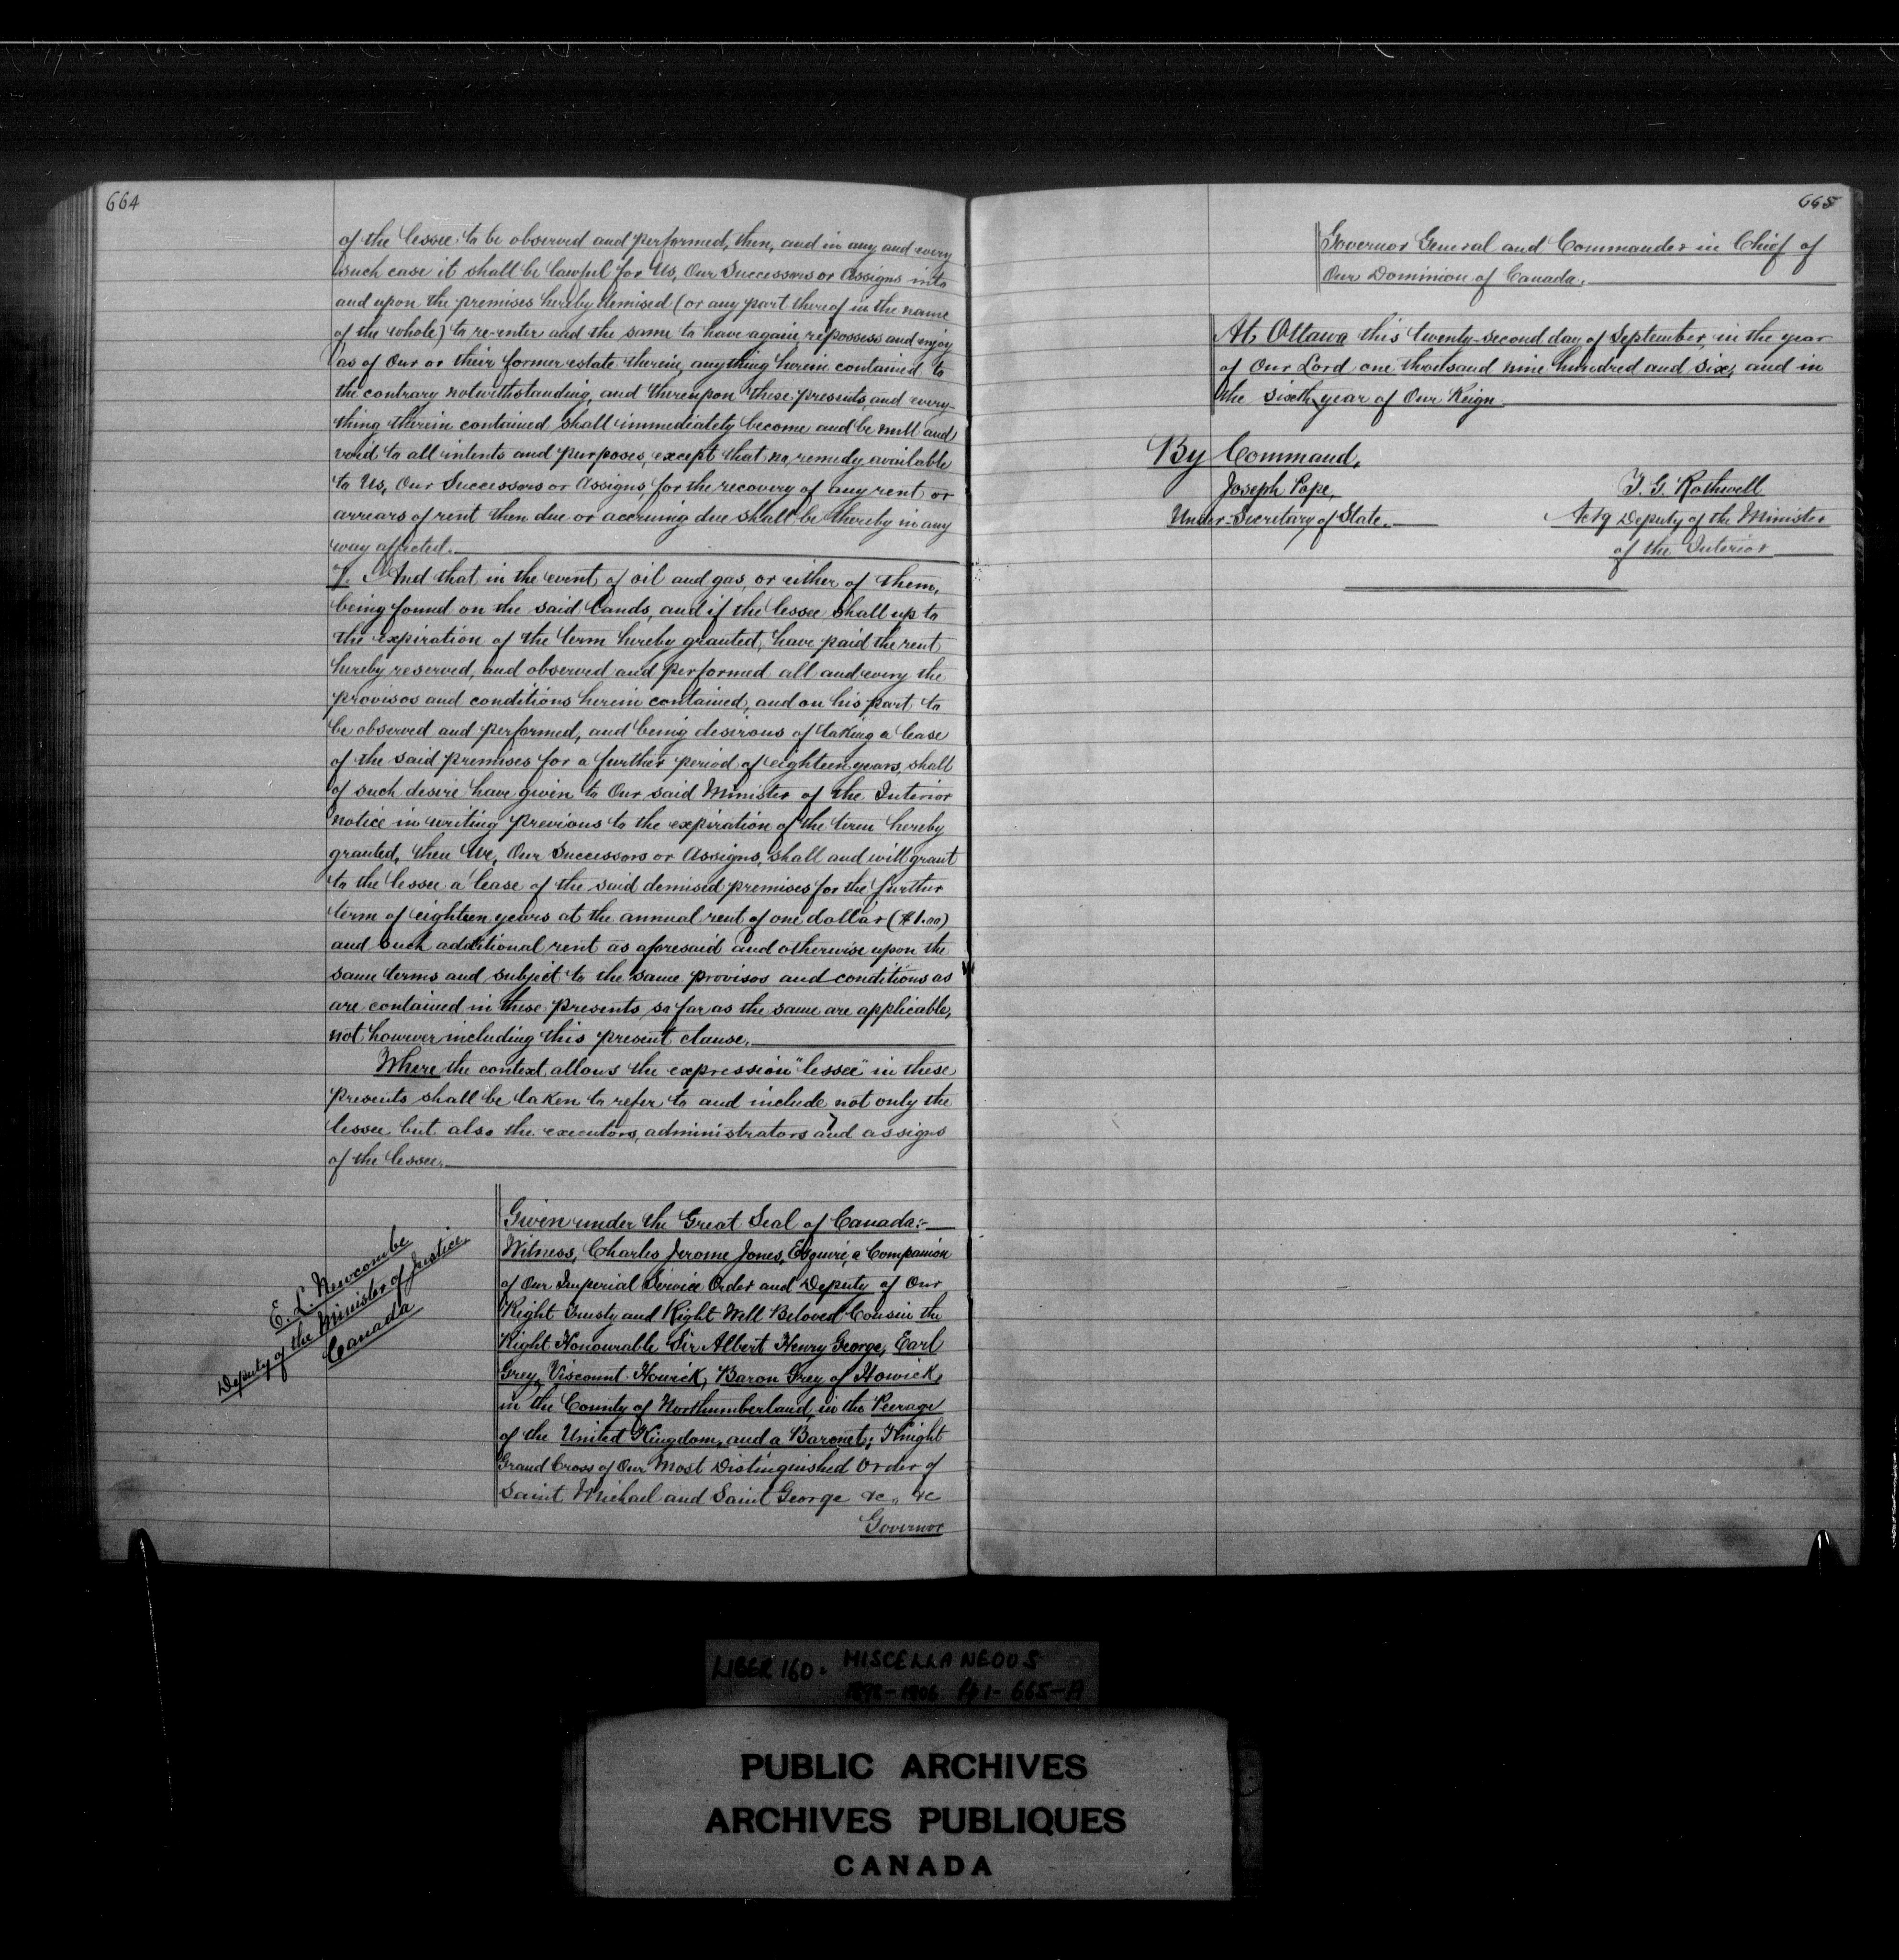 664
of the lessee to be observed and performed, then, and in any and every
such case it shall be lawful for Us, Our Successors or Assigns into
and upon the premises hereby demised (or any part thereof in the name
of the whole) to re-enter and the same to have again, repossess and enjoy
as of Our or their former estate therein, anything herein contained to
the contrary notwithstanding, and thereupon these presents, and every-
thing therein contained shall immediately become and be null and
void to all intents and purposes, except that no remedy available
to Us, Our Successors or Assigns, for the recovery of any rent or
arrears of rent then due or accruing due shall be thereby in any
way affected.
7. And that in the event of oil and gas, or either of them,
being found on the said lands, and if the lessee shall up to
the expiration of the term hereby granted, have paid the rent
hereby reserved, and observed and performed all and every the
provisos and conditions herein contained, and on his part to
be observed and performed, and being desirous of taking a lease
of the said premises for a further period of eighteen years, shall
of such desire have given to Our said Minister of the Interior
notice in writing previous to the expiration of the term hereby
granted, then We, Our Successors or Assigns, shall and will grant
to the lessee a lease of the said demised premises for the further
term of eighteen years at the annual rent of one dollar ($1.00)
and such additional rent as aforesaid and otherwise upon the
same terms and subject to the same provisos and conditions as
are contained in these presents so far as the same are applicable,
not however including this present clause.
Where the context allows the expression "lessee" in these
presents shall be taken to refer to and include not only the
lessee but also the executors, administrators and assigns
of the lessee.
Given under the Great Seal of Canada:-
Witness, Charles Jerome Jones, Esquire, a Companion
of Our Imperial Service Order and Deputy of Our
Right Trusty and Right Well Beloved Cousin the
Right Honourable Sir Albert Henry George, Earl
Grey, Viscount Howick, Baron Grey of Howick,
in the County of Northumberland, in the Peerage
of the United Kingdom, and a Baronet; Knight
Grand Cross of Our Most Distinguished Order of
Saint Michael and Saint George &c., &c
Governor
E. L. Newcombe
Deputy of the Minister of Justice
Canada
665
Governor General and Commander in Chief of
Our Dominion of Canada.
At Ottawa this twenty-second day of September, in the year
of Our Lord one thousand nine hundred and six, and in
the sixth year of Our Reign
By Command,
Joseph Pope,
Under-Secretary of State.
T. G. Rothwell
Actg Deputy of the Minister
of the Interior
LIBER 160. MISCELLANEOUS
1898-1906 Pp 1-665-A
PUBLIC ARCHIVES
ARCHIVES PUBLIQUES
CANADA